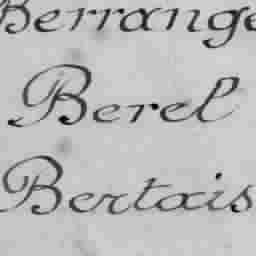 Berrange
Berel
Bertais